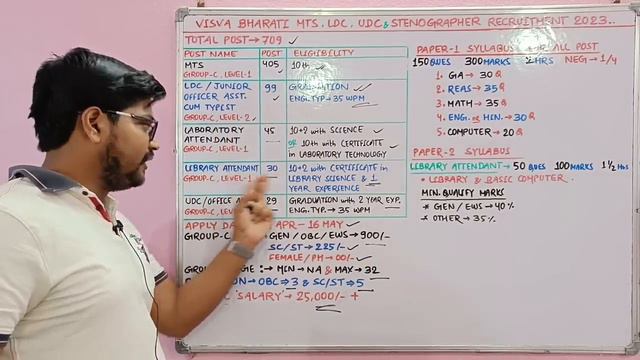 VISVA BHARATI MTS, LDC, UDC & STENOGRAPHER RECRUITMENT 2023..
TOTAL POST → 709
POST NAME POST ELIGIBILITY
MTS 405 10th
GROUP-C, LEVEL-1
LDC / JUNIOR 99 GRADUATION
OFFICER ASST. ENG. TYP → 35 WPM
CUM TYPIST
GROUP-C, LEVEL-2
LABORATORY 45 10+2 with SCIENCE
ATTENDANT OR 10th with CERTIFICATE
GROUP-C, LEVEL-1 in LABORATORY TECHNOLOGY
LIBRARY ATTENDANT 30 10+2 with CERTIFICATE in
GROUP-C, LEVEL-1 LIBRARY SCIENCE & 1
YEAR EXPERIENCE
UDC/OFFICE 29 GRADUATION with 2 YEAR EXP.
GROUP-C, LEVEL ENG. TYP. → 35 WPM
APPLY APR - 16 MAY
GROUP-C → GEN / OBC / EWS → 900/-
SC/ST → 225/-
FEMALE / PH → 00/-
GROUP GE :→ MIN → NA & MAX → 32
ON → OBC → 3 & SC/ST → 5
'SALARY' → 25,000/- +
PAPER-1 SYLLABUS ALL POST
150 QUES 300 MARKS HRS NEG → 1/4
1. GA → 30 Q
2. REAS → 35 Q
3. MATH → 35 Q
4. ENG. or HIN. → 30 Q
5. COMPUTER → 20 Q
PAPER-2 SYLLABUS
LIBRARY ATTENDANT → 50 QUES 100 MARKS 1 1/2 HRS
• LIBRARY & BASIC COMPUTER.
MIN. QUALIFY MARKS
* GEN / EWS → 40%
* OTHER → 35%